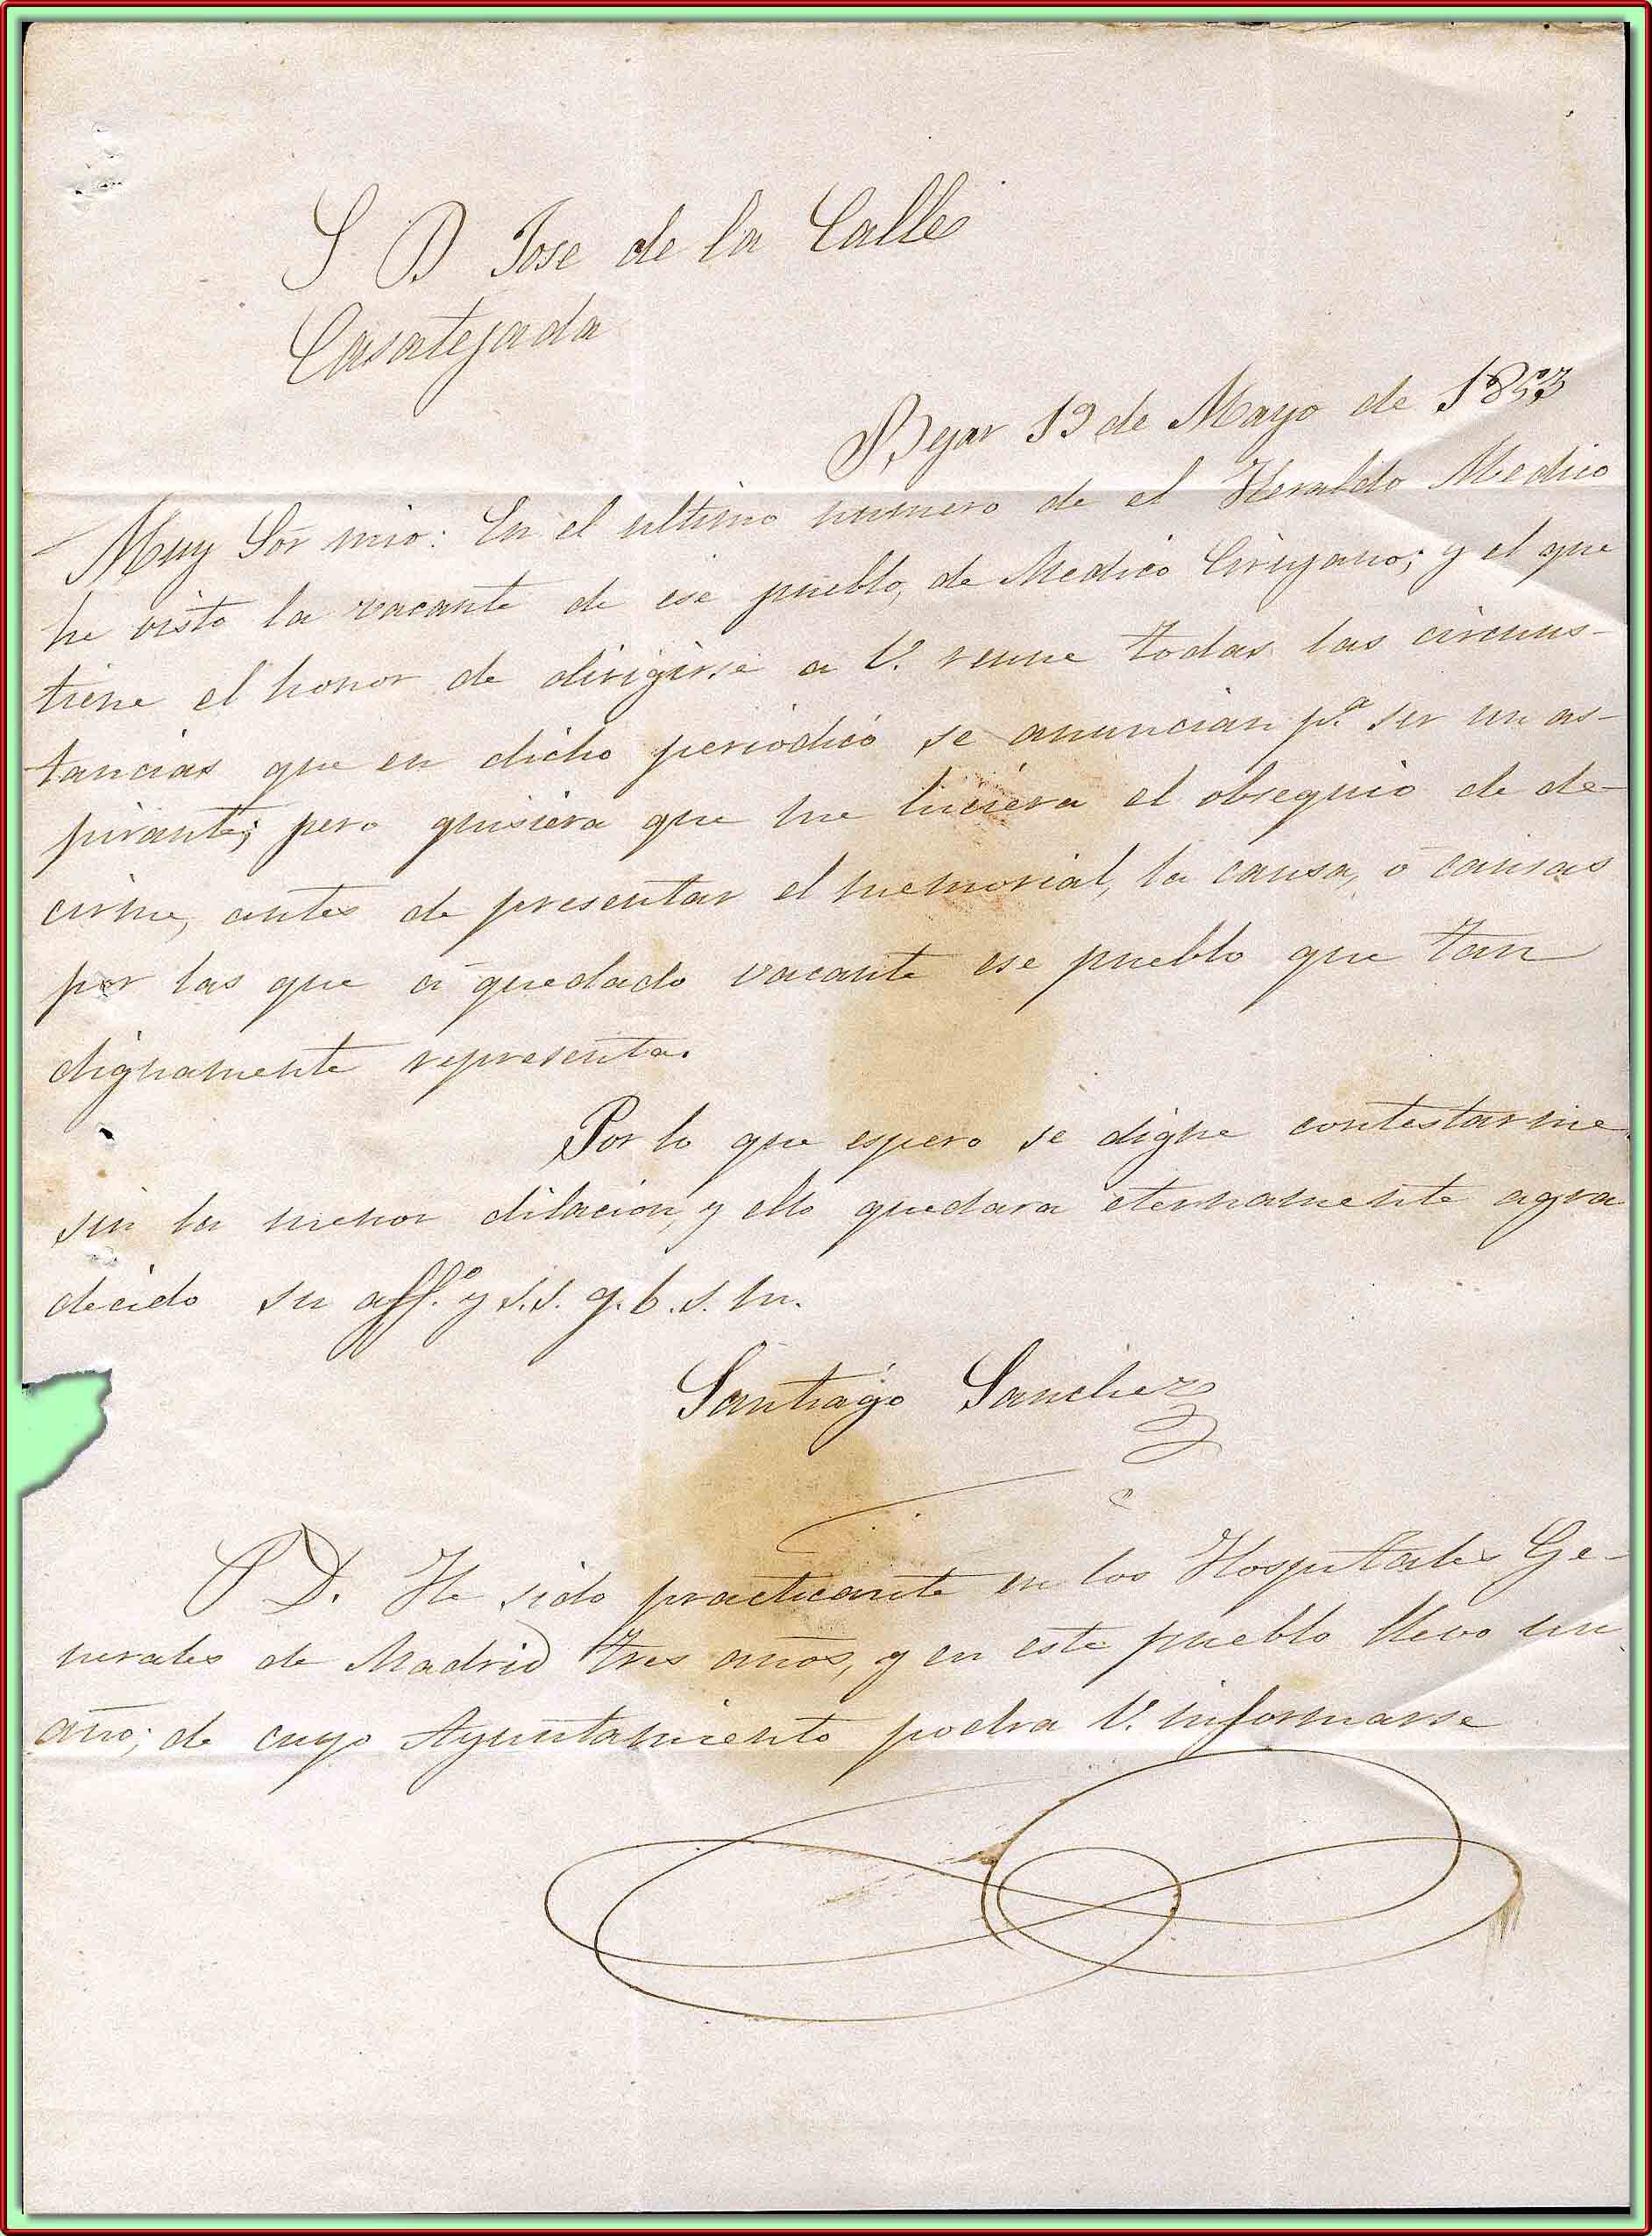 S D Jose de la Calle
Casatejada
Bejar 19 de Mayo de 1853
Muy Sor mio: En el ultimo numero de el Heraldo Medico
he visto la vacante de ese pueblo, de Medico Cirujano; y el que
tiene el honor de dirigirse a V. reune todas las circuns-
tancias que en dicho periodico se anuncian p.ª ser un as-
pirante; pero quisiera que me hiciera el obsequio de de-
cirme, antes de presentar el memorial, la causa, o causas
por las que a quedado vacante ese pueblo que tan
dignamente representa.
Por lo que espero se digne contestarme
sin la menor dilacion, y ello quedara eternamente agra
decido su aff.º y s.s. q. b. s. m.
Santiago Sanchez
P D. He sido practicante en los Hospitales Ge-
nerales de Madrid tres años, y en este pueblo llevo un
año; de cuyo Ayuntamiento podra V. informarse